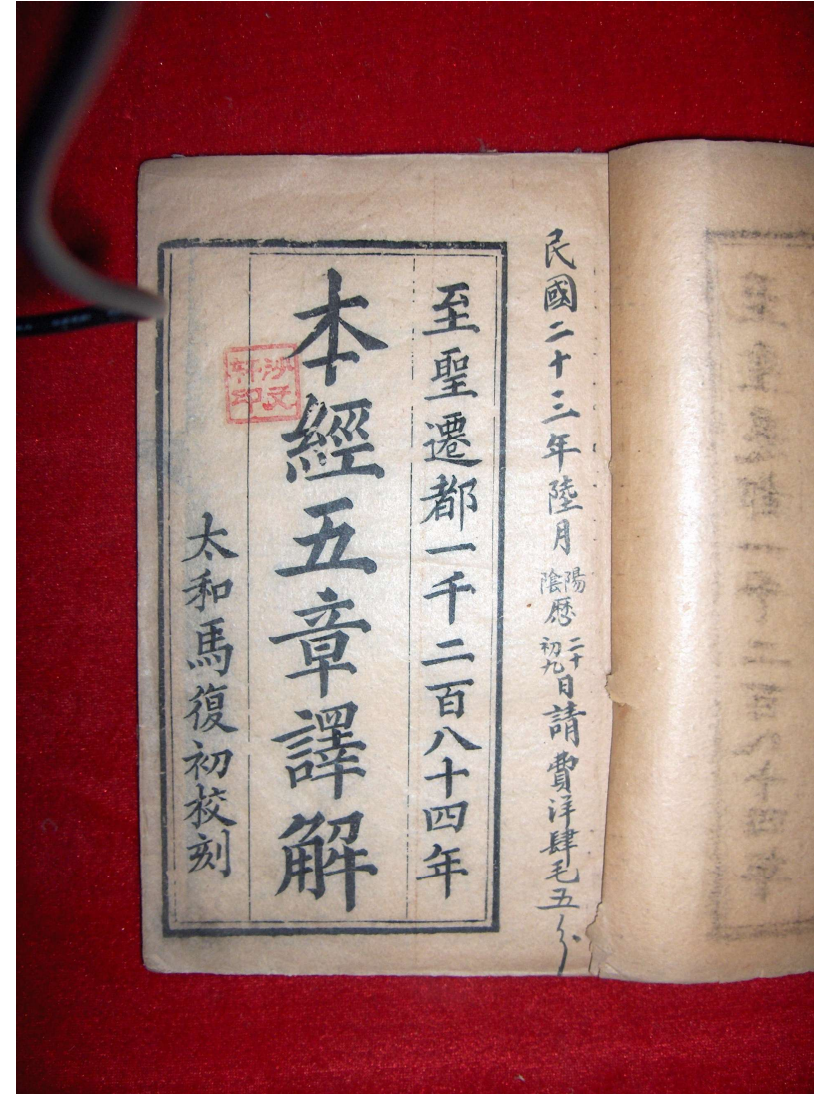 民國二十三年陸月陽陰歷二十初九日請費洋肆毛五分
至聖遷都一千二百八十四年
本經五章譯解
太和馬復初校刻